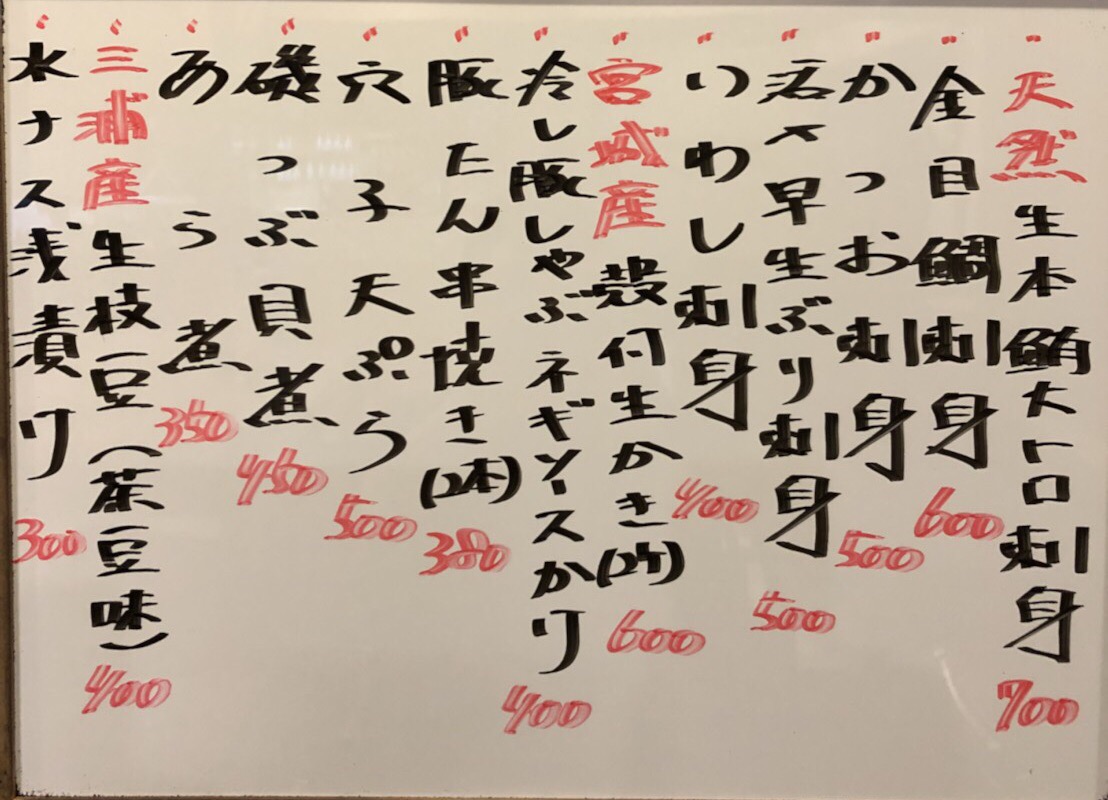 天然生本鮪大トロ刺身 700
金目鯛刺身 600
かつお刺身 500
活〆早生ぶり刺身 500
いわし刺身 400
宮城産殻付生かき(2ケ) 600
冷し豚しゃぶネギソースかけ 400
豚たん串焼き(2本) 380
穴子天ぷら 500
磯つぶ貝煮 450
あら煮 350
三浦産生枝豆(茶豆味) 400
水ナス浅漬け 300